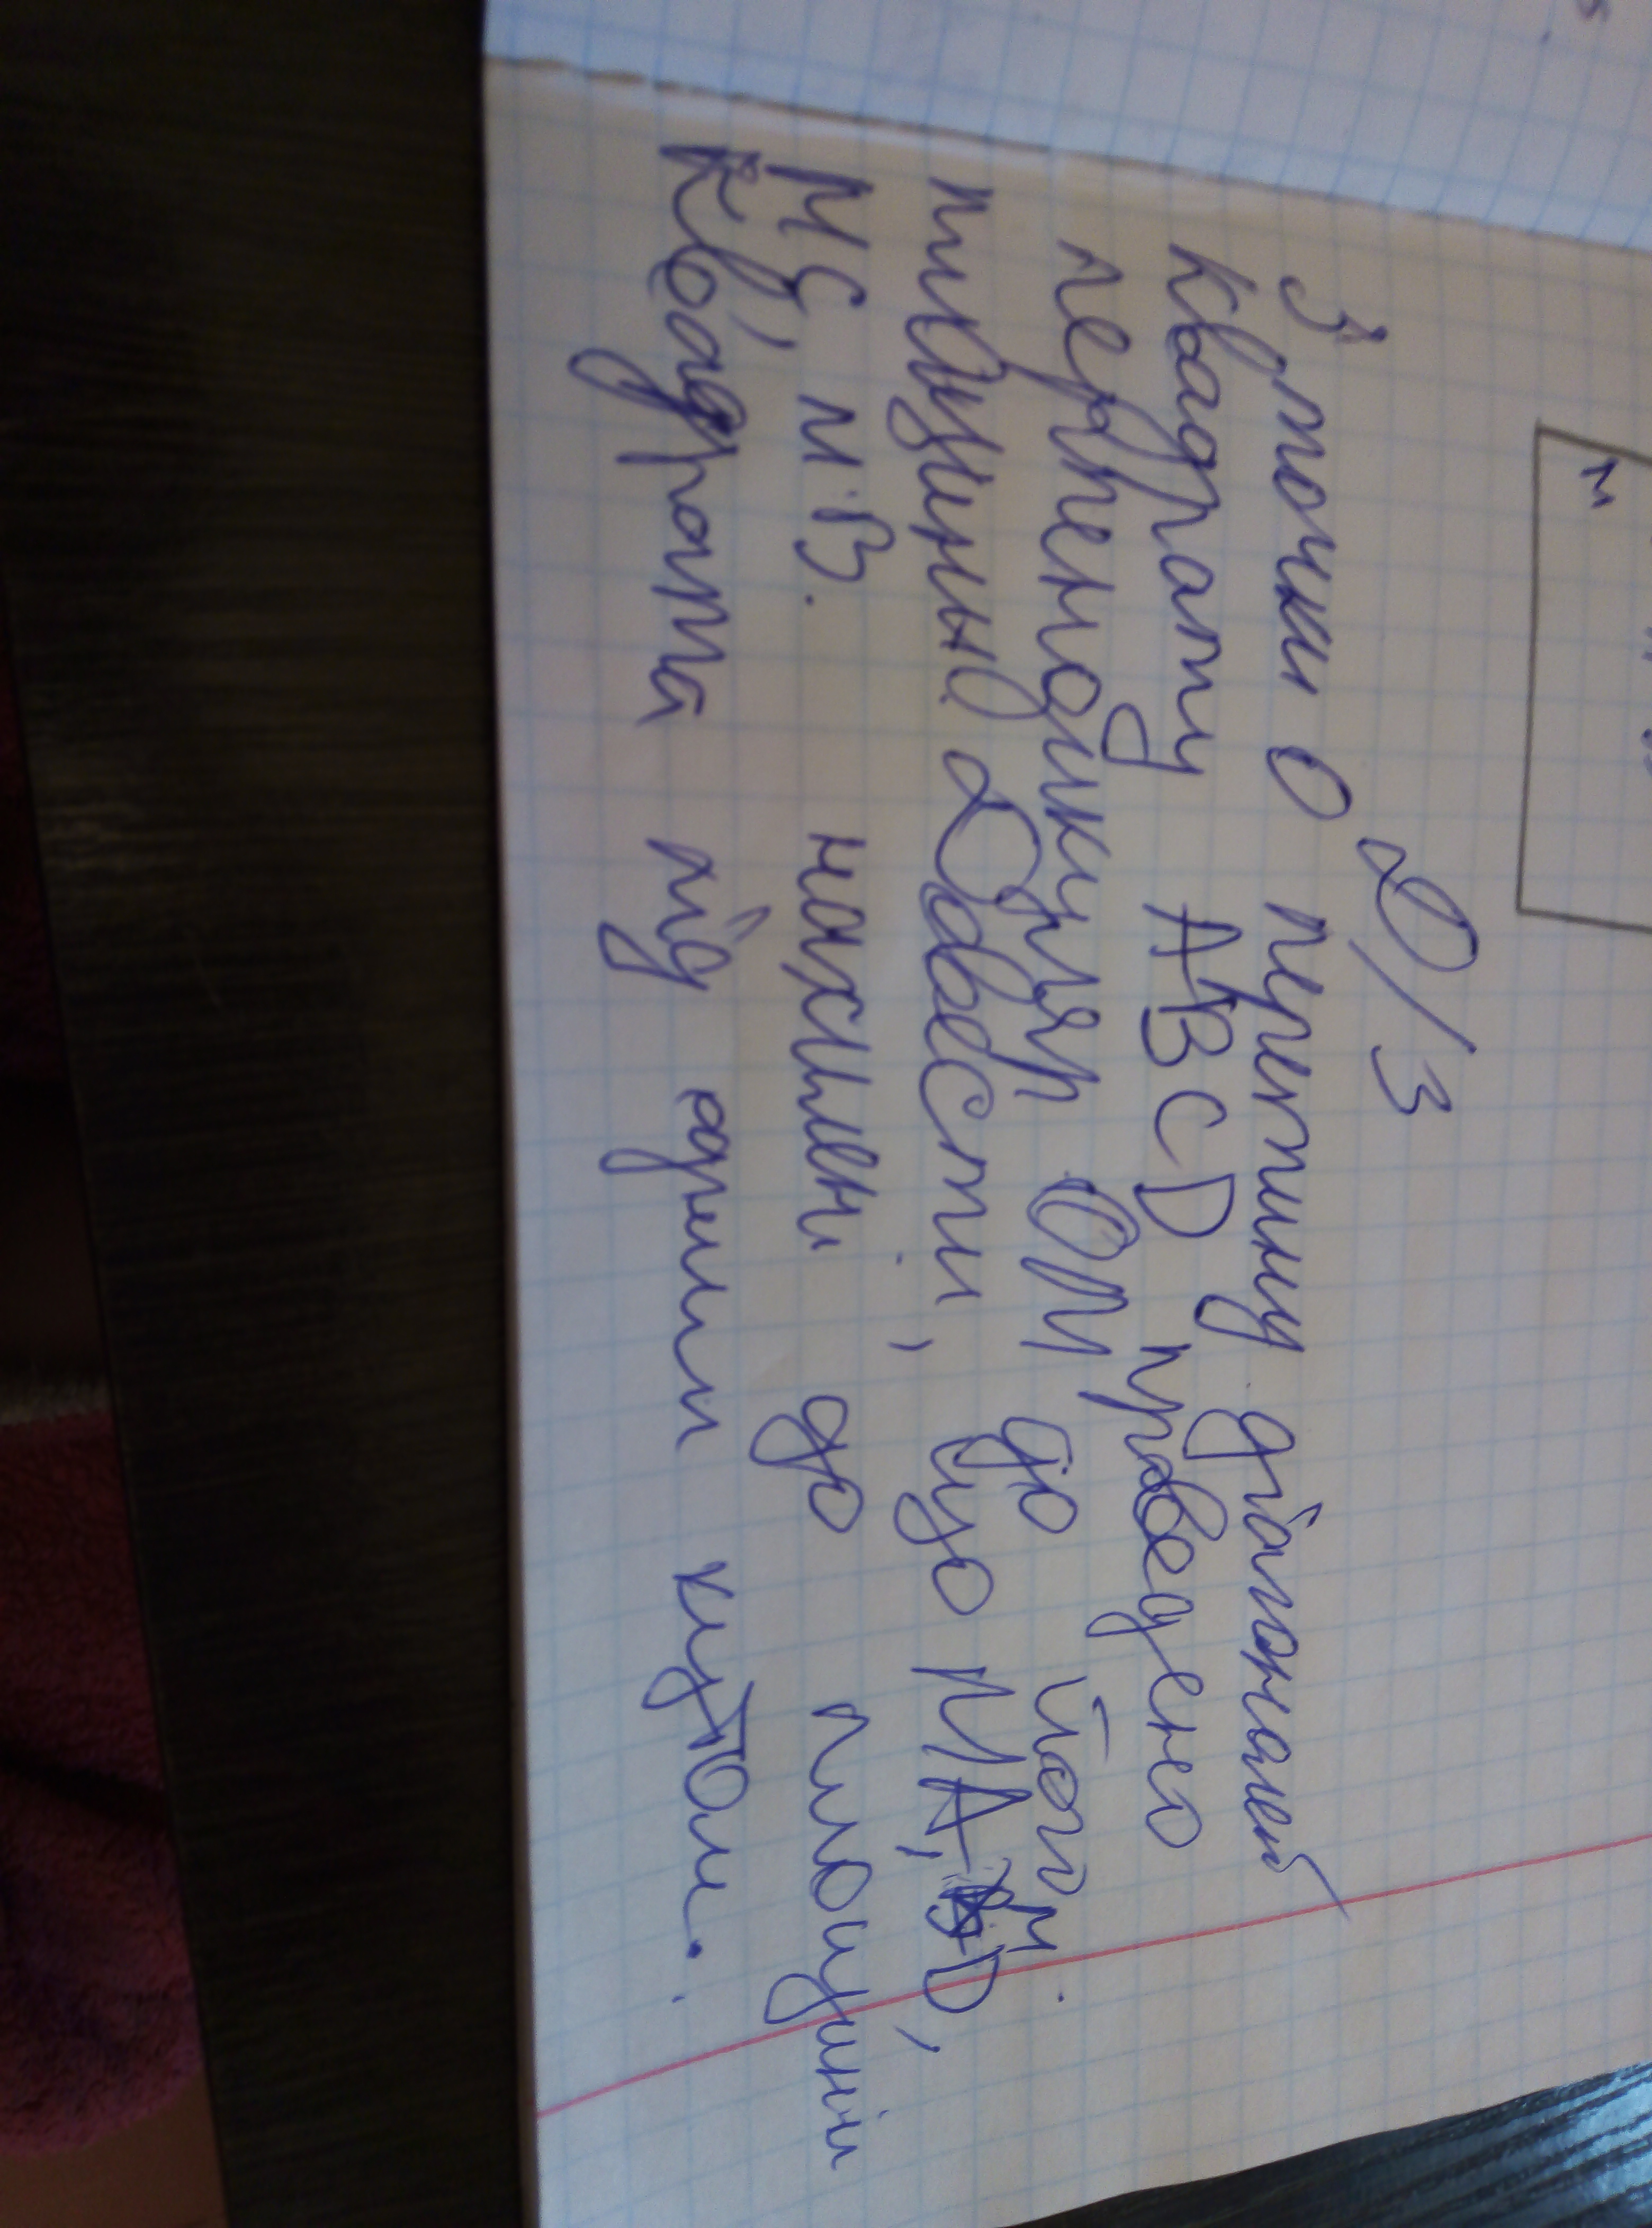 Д/З
З точки О перетину діагоналей
квадрату ABCD проведено
перпендикуляр OM до його
площини Довести, що MA, MD,
MC, MB. нахилені до площини
Квадрата під одним кутом.
м